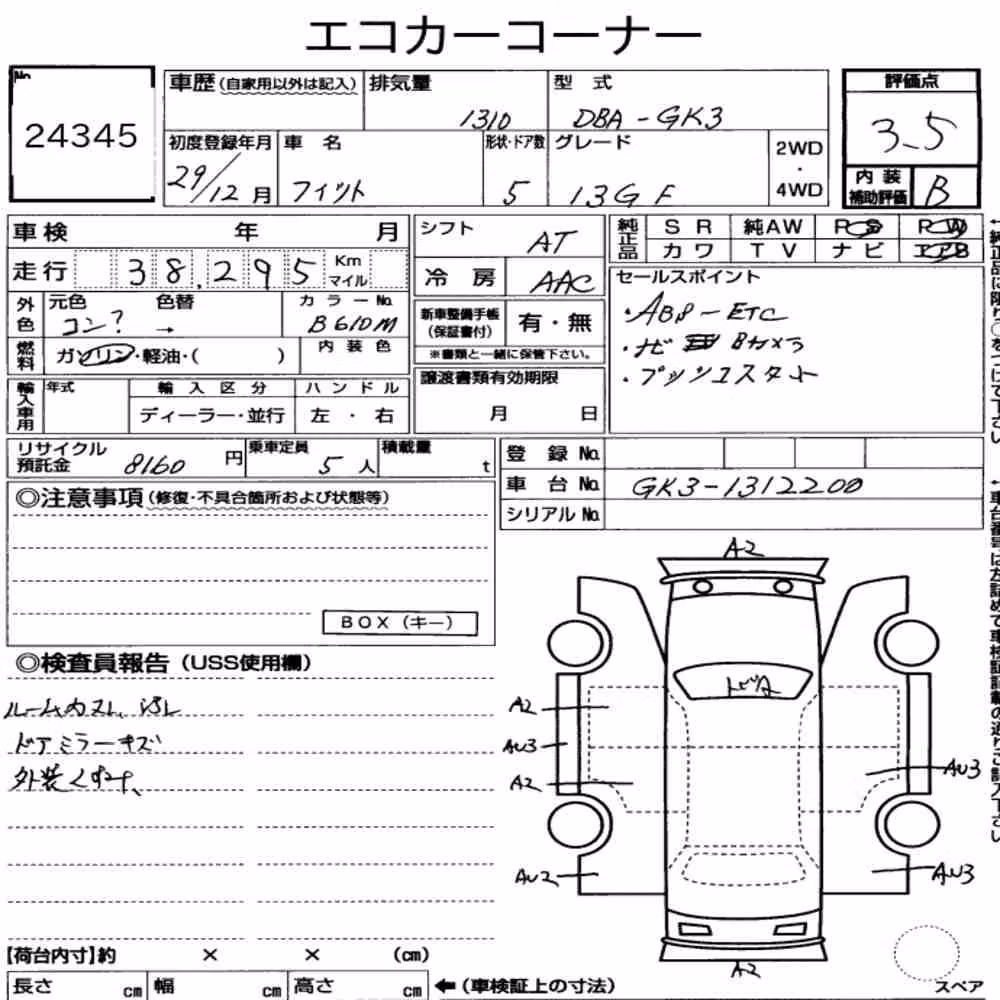 エコカーコーナー
No. 24345
車歴 (自家用以外は記入) 排気量 1310 型式 DBA-GK3 評価点 3.5
初度登録年月 29/12月 車名 フィット 形状・ドア数 5 グレード 13G F 2WD・4WD 内装補助評価 B
車検 年 月 シフト AT 純正品 SR 純AW PS PW
カワ TV ナビ エアB
走行 38,295 Km マイル 冷房 AAC セールスポイント
外色 元色 コン? 色替 → カラーNo. B610M 新車整備手帳(保証書付) 有・無 ・ABS-ETC
・ナビ Bカメラ
燃料 ガソリン・軽油・( ) 内装色 ※書類と一緒に保管下さい。 ・プッシュスタート
輸入車用 年式 輸入区分 ハンドル 譲渡書類有効期限
ディーラー・並行 左・右 月 日
リサイクル預託金 8160円 乗車定員 5人 積載量 t 登録No.
車台No. GK3-1312200
シリアルNo.
◎注意事項 (修復・不具合箇所および状態等)
BOX (キー)
◎検査員報告 (USS使用欄)
ルーム内スレ、汚レ
ドアミラーキズ
外装くすみ、
A2
トビA
A2
AU3
A2
AU3
AU2
AU3
A2
スペア
【荷台内寸】約 × × (cm)
長さ cm 幅 cm 高さ cm ←(車検証上の寸法)
←純正品に限り○をつけて下さい
←車台番号は左詰めで車検証記載の通りご記入下さい